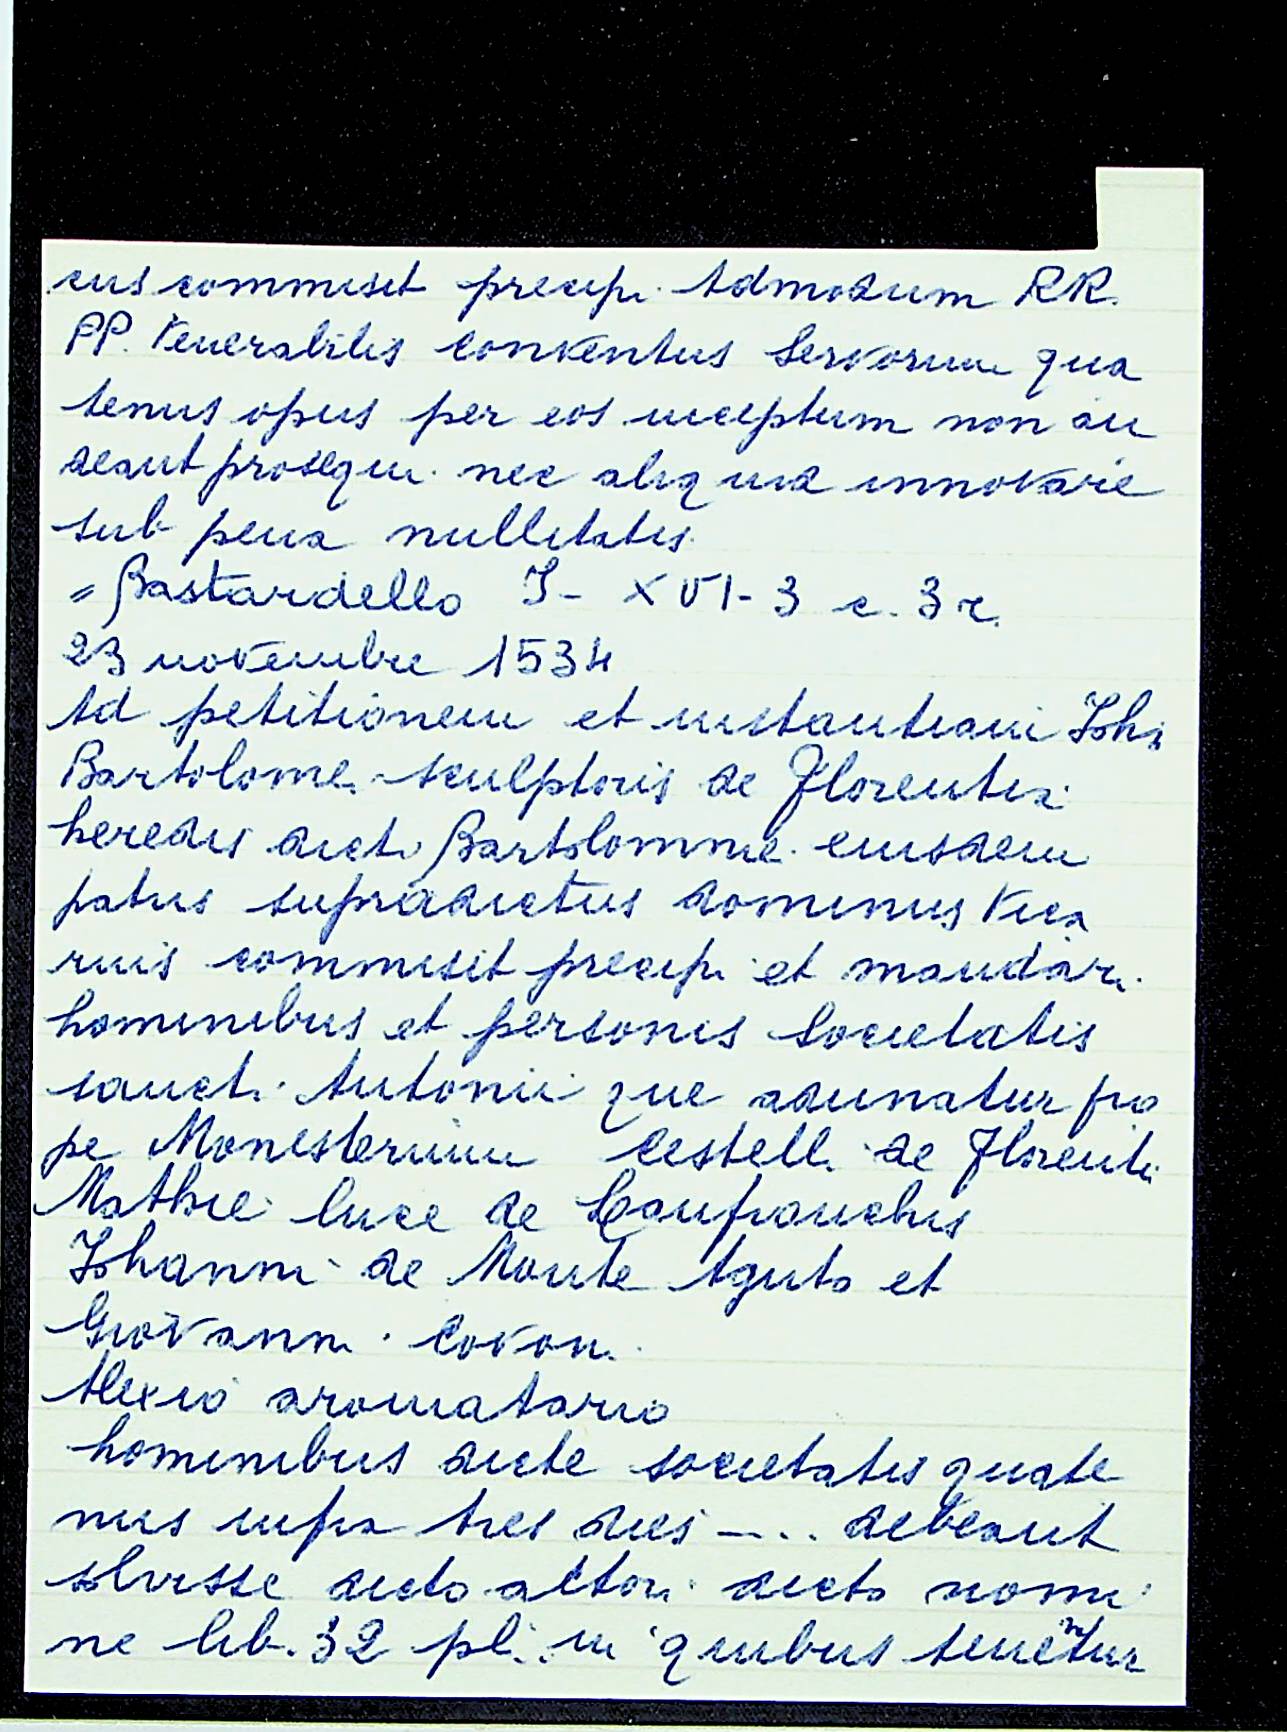 cus commisit precipi Admodum RR.
PP. Venerabilis Conventus Servorum qua
tenus opus per eos inceptum non au
deant prosequi nec aliquid innovare
sub pena nullitatis
= Bastardello I- XVI-3 c. 3 r.
23 novembre 1534
Ad petitionem et instantiam Johi
Bartolomei sculptoris de Florentia
heredis dicti Bartolommei eiusdem
patris supradictus dominus Vica
rius commisit precipi et mandari
hominibus et personis Societatis
sancti Antonii que adunatur pro
pe Monesterium Cestelli de Florenti
Mathie luce de Canfranchis
Johanni de Monte Aguto et
Giovanni Covoni
Alexio aromatario
hominibus dicte societatis quate
nus infra tres dies -... debeant
solvisse dicto actori dicto nomi
ne lib. 32 pl. in quibus tenentur